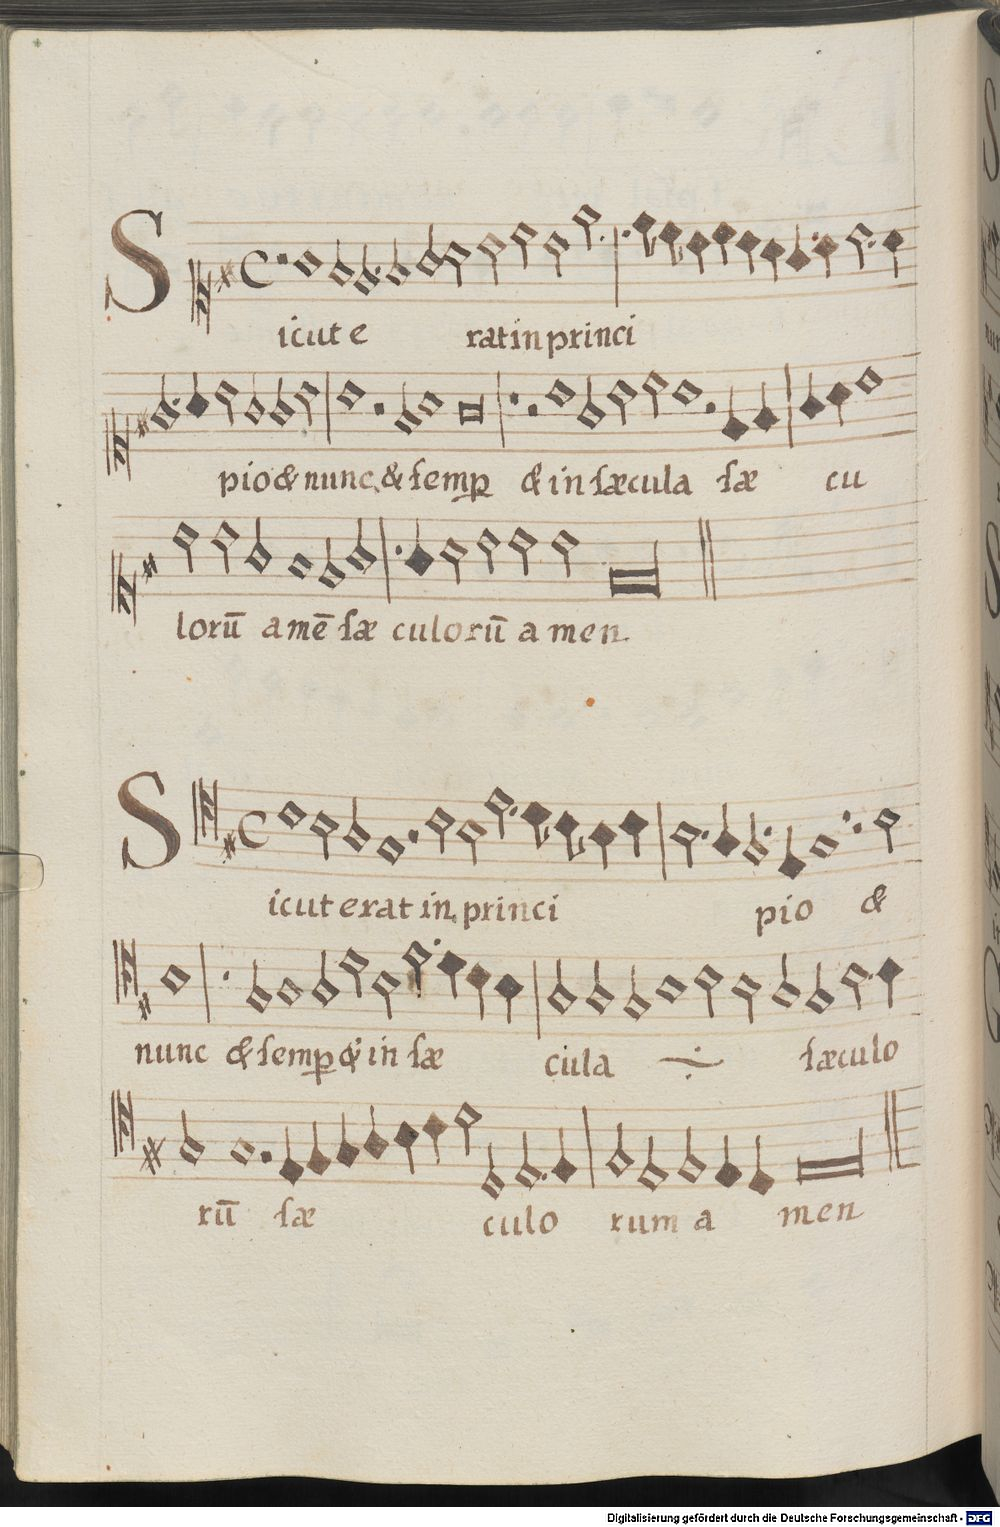 Sicut e rat in princi
pio & nunc & semp & in sæcula sæ cu
lorū amē sæ culorū amen
Sicut erat in princi pio &
nunc & semp & in sæ cula sæculo
rū sæ culo rum a men
Digitalisierung gefördert durch die Deutsche Forschungsgemeinschaft - DFG